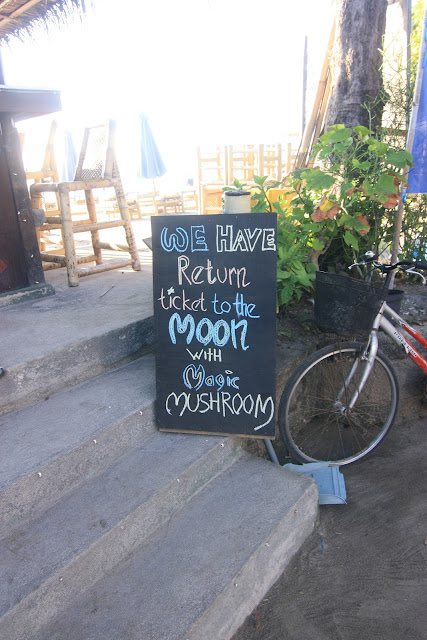 WE HAVE
Return
ticket to the
MOON
WITH
Magic
MUSHROOM